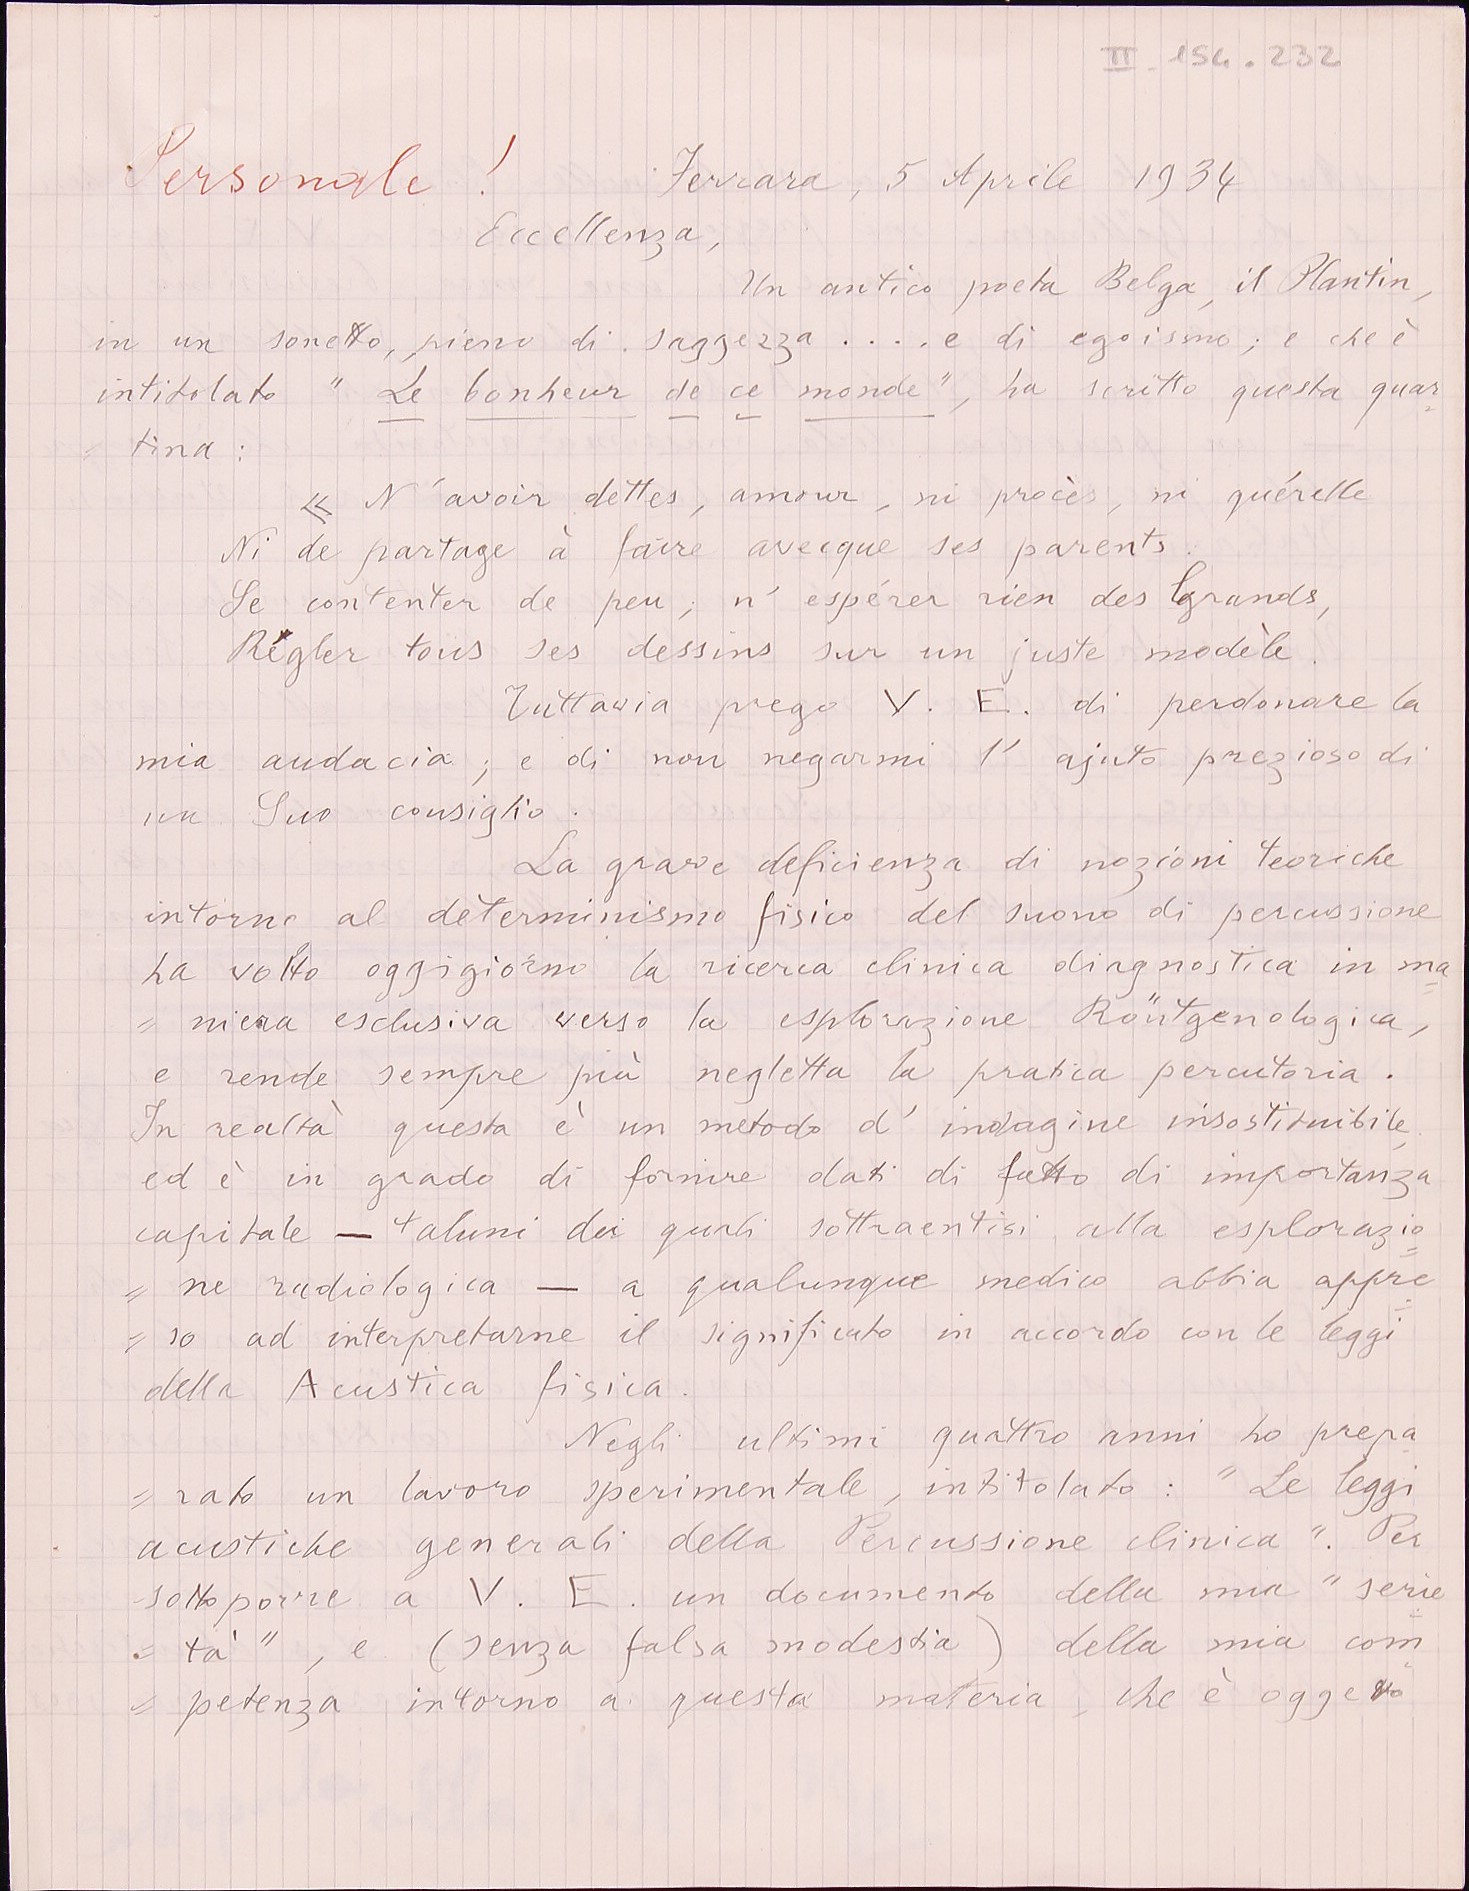 II 154.232
Personale !
Ferrara, 5 Aprile 1934
Eccellenza,
Un antico poeta Belga, il Plantin,
in un sonetto, pieno di saggezza .... e di egoismo; e che è
intitolato " Le bonheur de ce monde", ha scritto questa quar
= tina :
« N'avoir dettes, amour, ni procès, ni quérelle
Ni de partage à faire avecque ses parents.
Se contenter de peu; n'espérer rien des grands,
Régler tous ses dessins sur un juste modèle.
Tuttavia prego V. E. di perdonare la
mia audacia; e di non negarmi l'ajuto prezioso di
un Suo consiglio.
La grave deficienza di nozioni teoriche
intorno al determinismo fisico del suono di percussione
ha volto oggigiorno la ricerca clinica diagnostica in ma
= niera esclusiva verso la esplorazione Röntgenologica,
e rende sempre più negletta la pratica percutoria.
In realtà questa è un metodo d'indagine insostituibile,
ed è in grado di fornire dati di fatto di importanza
capitale — taluni dei quali sottraentisi alla esplorazio
= ne radiologica — a qualunque medico abbia appre
= so ad interpretarne il significato in accordo con le leggi
della Acustica fisica.
Negli ultimi quattro anni ho prepa
= rato un lavoro sperimentale, intitolato : " Le leggi
acustiche generali della Percussione clinica ". Per
sottoporre a V. E. un documento della mia " serie
= tà ", e (senza falsa modestia) della mia com
= petenza intorno a questa materia, che è oggetto